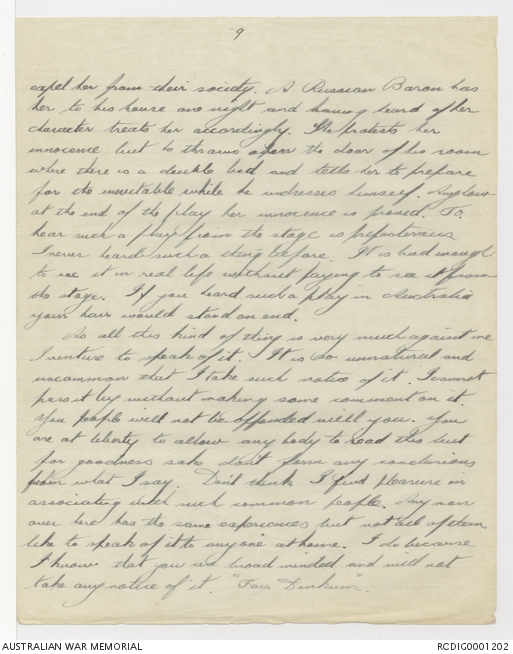 9
expel her from their society. A Russian Baron has
her to his house one night and having heard of her
character treats her accordingly. She protests her
innocence but he throws open the door of his room
where there is a double bed and tells her to prepare
for the inevitable while he undresses himself. Anyhow
at the end of the play her innocence is proved. To
hear such a play from the stage is preposterous
I never heard such a thing before. It is bad enough
to see it in real life without paying to see it from
the stage. If you heard such a play in Australia
your hair would stand on end.
As all this kind of thing is very much against me
I venture to speak of it. It is so unnatural and
uncommon that I take such notice of it. I cannot
pass it by without making some comment on it.
You people will not be offended will you. You
are at liberty to allow any body to read this but
for goodness sake don't form any conclusions
from what I say. Don't think I find pleasure in
associating with such common people. Any man
over here has the same experiences but not all of them
like to speak of it to anyone at home. I do because
I know that you are broad minded and will not
take any notice of it. "Fair Dinkum".
AUSTRALIAN WAR MEMORIAL
RCDIG0001202